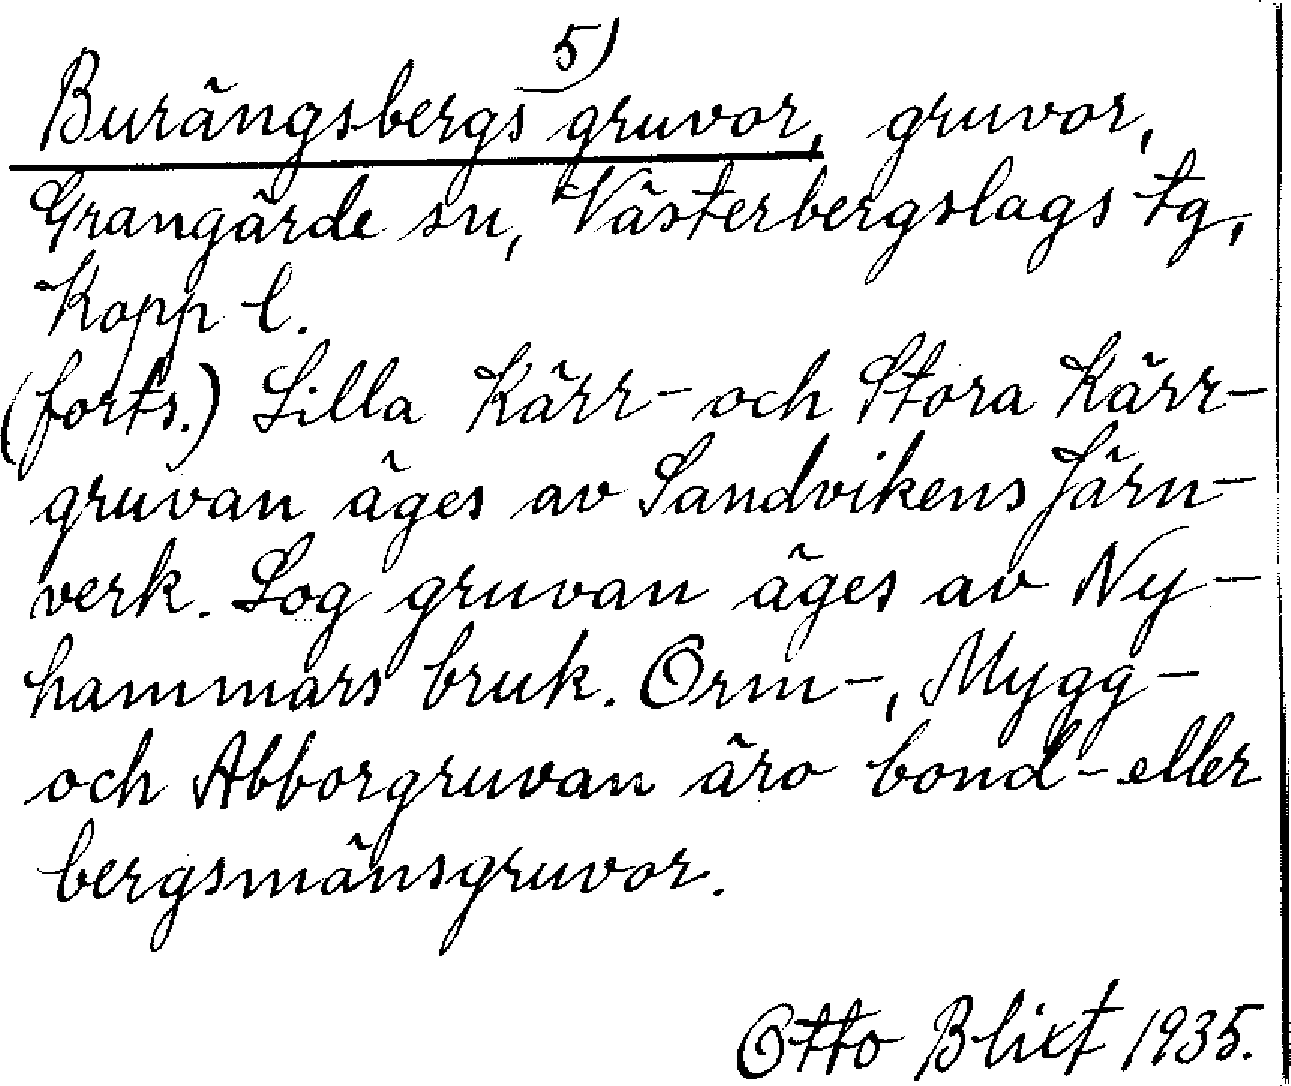 5)
Burängsbergs gruvor, gruvor,
Grangärde sn, Västerbergslags tg,
Kopp l.
(forts.) Lilla Kärr- och Stora Kärr-
gruvan äges av Sandvikens Järn-
verk. Log gruvan äges av Ny-
hammars bruk. Orm-, Mygg-
och Abborgruvan äro bond- eller
bergsmänsgruvor.
Otto Blixt 1935.